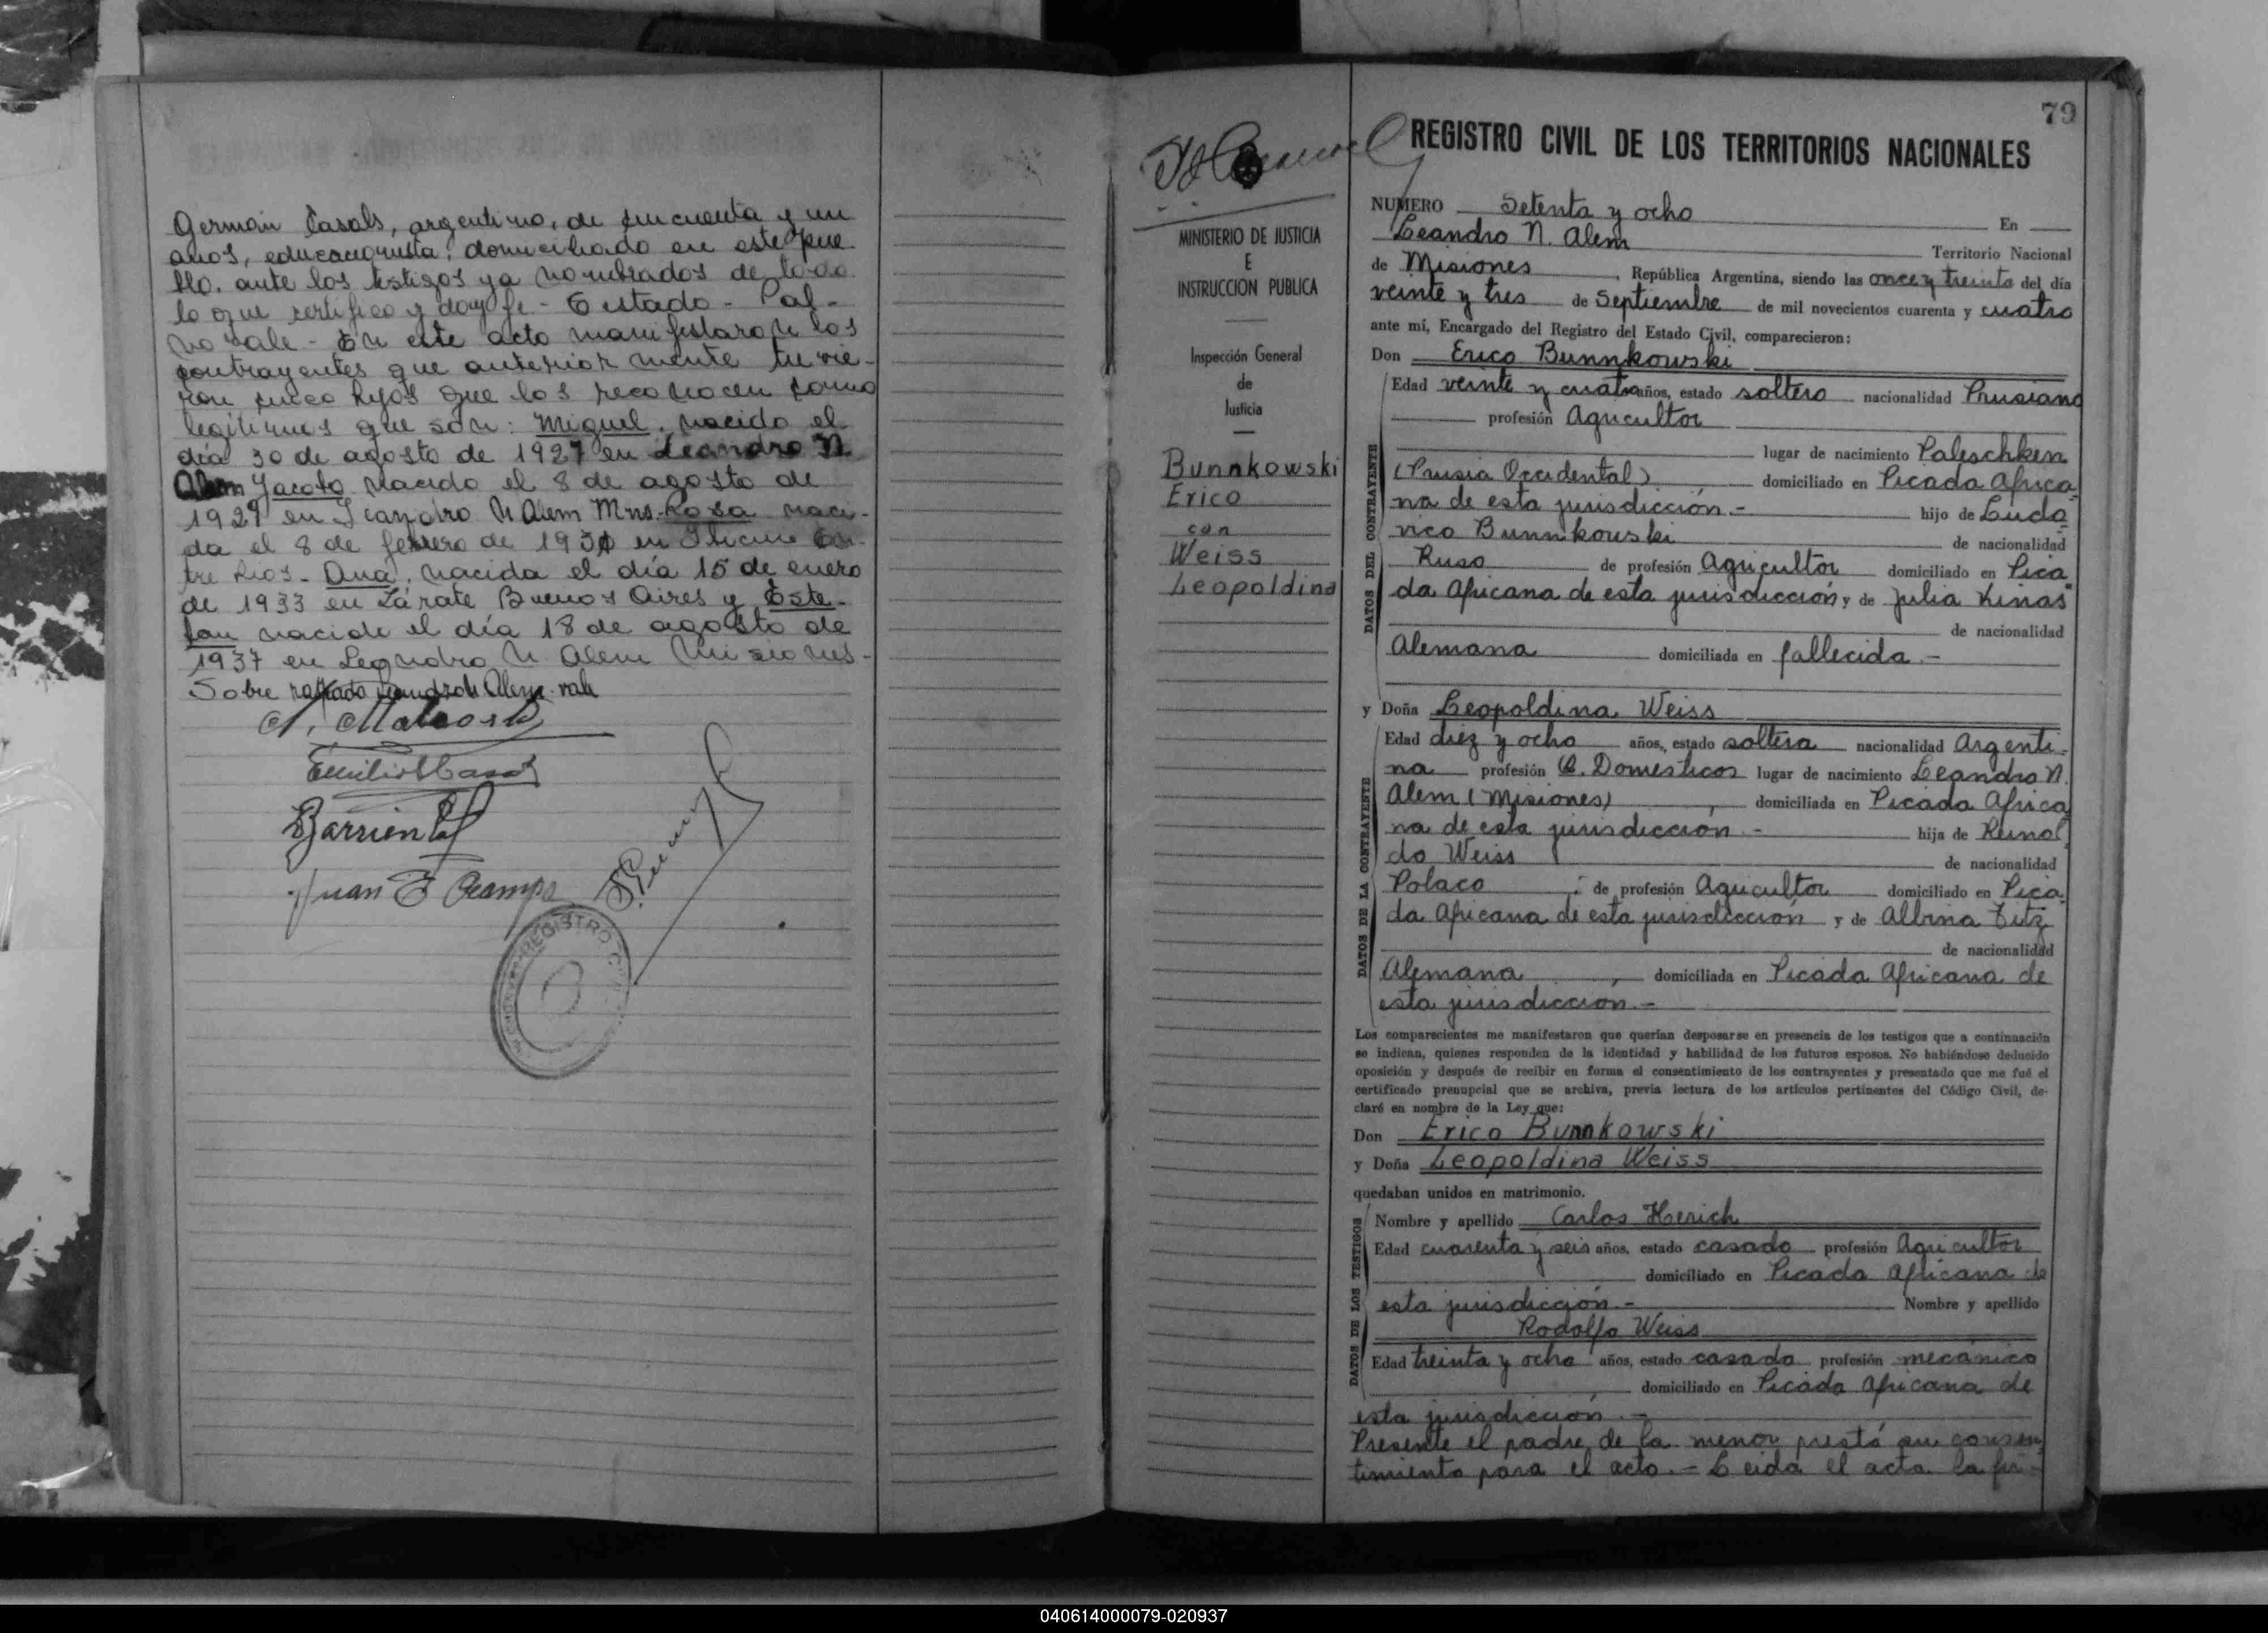 German Casals, argentino, de cincuenta y un
años, educacionista, domiciliado en este pue-
blo. ante los testigos ya nombrados de todo
lo que certifico y doy fe - Estado - Pal-
no vale - En este acto manifestaron los
contrayentes que anteriormente tuvie-
ron cinco hijos que los reconocen como
legitimos que son: Miguel, nacido el
día 30 de agosto de 1927 en Leandro N
Alem Jacobo nacido el 8 de agosto de
1929 en Leandro N Alem Mns. Rosa naci-
da el 8 de febrero de 1930 en En-
tre Rios - Ana, nacida el día 15 de enero
de 1933 en Zárate Buenos Aires y Este-
ban nacido el día 18 de agosto de
1937 en Leandro N. Alem Misiones -
Sobre raspado Leandro N Alem - vale
Barrient
Juan E Ocampo
REGISTRO
79
REGISTRO CIVIL DE LOS TERRITORIOS NACIONALES
MINISTERIO DE JUSTICIA
E
INSTRUCCION PUBLICA
Inspección General
de
Justicia
Bunnkowski
Erico
con
Weiss
Leopoldina
NUMERO Setenta y ocho En
Leandro N. Alem Territorio Nacional
de Misiones, República Argentina, siendo las once y treinta del día
veinte y tres de Septiembre de mil novecientos cuarenta y cuatro
ante mí, Encargado del Registro del Estado Civil, comparecieron:
Don Erico Bunnkowski
DATOS DEL CONTRAYENTE
Edad veinte y cuatro años, estado soltero nacionalidad Prusiano
profesión Agricultor
lugar de nacimiento Paleschken
(Prusia Occidental) domiciliado en Picada Africa-
na de esta jurisdicción.- hijo de Ludo-
vico Bunnkowski de nacionalidad
Ruso de profesión Agricultor domiciliado en Pica-
da Africana de esta jurisdicción y de Julia Kinas
de nacionalidad
Alemana domiciliada en fallecida.-
y Doña Leopoldina Weiss
DATOS DE LA CONTRAYENTE
Edad diez y ocho años, estado soltera nacionalidad Argenti-
na profesión Q. Domesticos lugar de nacimiento Leandro N.
Alem (Misiones), domiciliada en Picada Africa
na de esta jurisdicción.- hija de Reinol
do Weiss de nacionalidad
Polaco de profesión Agricultor domiciliado en Pica-
da Africana de esta jurisdicción y de Albina Titz
de nacionalidad
Alemana, domiciliada en Picada Africana de
esta jurisdicción.-
Los comparecientes me manifestaron que querían desposarse en presencia de los testigos que a continuación
se indican, quienes responden de la identidad y habilidad de los futuros esposos. No habiéndose deducido
oposición y después de recibir en forma el consentimiento de los contrayentes y presentado que me fué el
certificado prenupcial que se archiva, previa lectura de los artículos pertinentes del Código Civil, de-
claré en nombre de la Ley que:
Don Erico Bunnkowski
y Doña Leopoldina Weiss
quedaban unidos en matrimonio.
DATOS DE LOS TESTIGOS
Nombre y apellido Carlos Herich
Edad cuarenta y seis años, estado casado profesión Agricultor
domiciliado en Picada Africana de
esta jurisdicción.- Nombre y apellido
Rodolfo Weiss
Edad treinta y ocho años, estado casado profesión mecánico
domiciliado en Picada Africana de
esta jurisdicción.-
Presente el padre de la menor prestó su consen
timiento para el acto.- Leida el acta la fir-
040614000079-020937